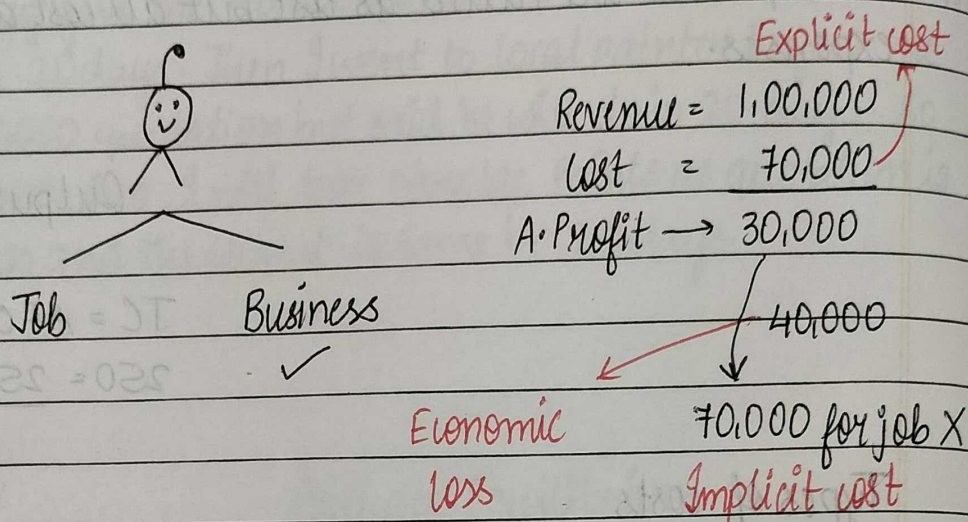 Explicit cost
Revenue = 1,00,000
Cost = 70,000
A. Profit → 30,000
Job Business
-40,000
✓
Economic 70,000 for job X
loss Implicit cost
TC =
250 = 25
Output